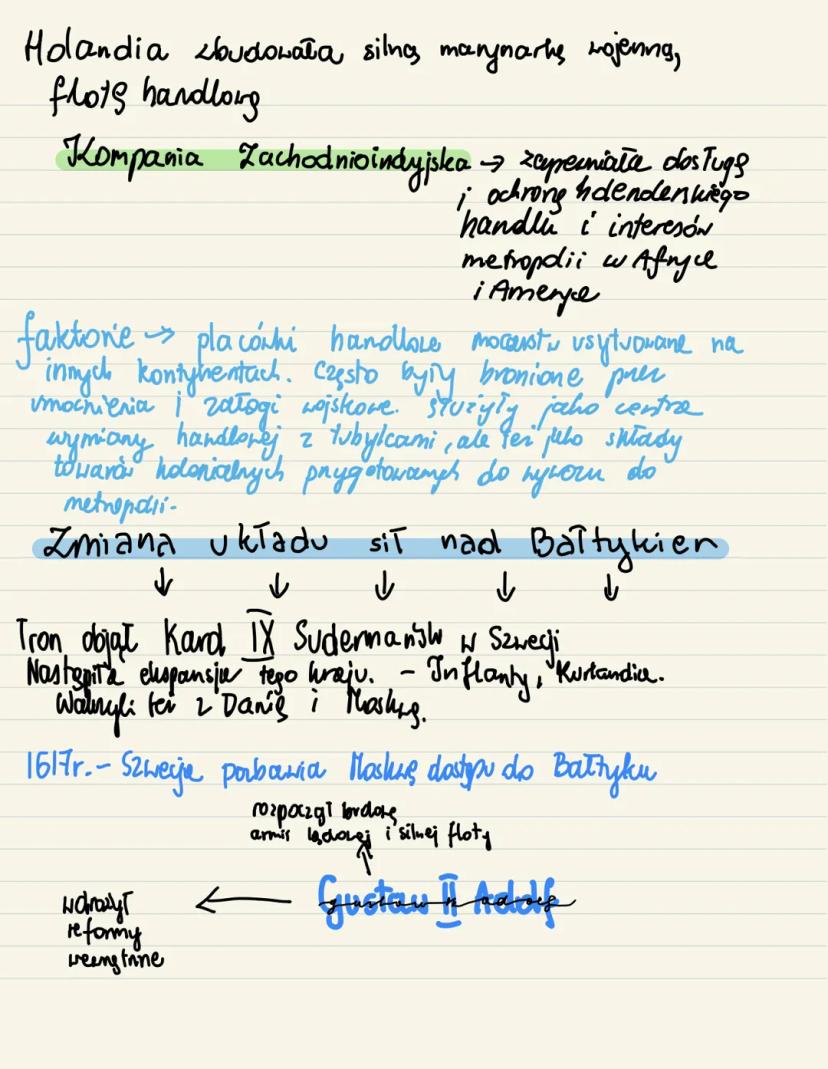 Holandia zbudowała silną marynarkę wojenną,
flotę handlową
Kompania Zachodnioindyjska → zapewniała dosługę
i ochronę holenderskiego
handlu i interesów
metropolii w Afryce
i Ameryce
faktorie → placówki handlowe mocarstw usytuowane na
innych kontynentach. Często były bronione przez
umocnienia i załogi wojskowe. Służyły jako centra
wymiany handlowej z tubylcami, ale też jako składy
towarów kolonialnych przygotowanych do wywozu do
metropolii.
Zmiana układu sił nad Bałtykiem
↓ ↓ ↓ ↓ ↓
Tron objął Karol IX Sudermański w Szwecji
Nastąpiła ekspansja tego kraju. - Inflanty, Kurlandia.
Walczyli też z Danią i Moskwą.
1617r. - Szwecja pozbawia Moskwę dostępu do Bałtyku
rozpoczął budowę
armii lądowej i silnej floty
↑
← Gustaw II Adolf
wdrożył
reformy
wewnętrzne